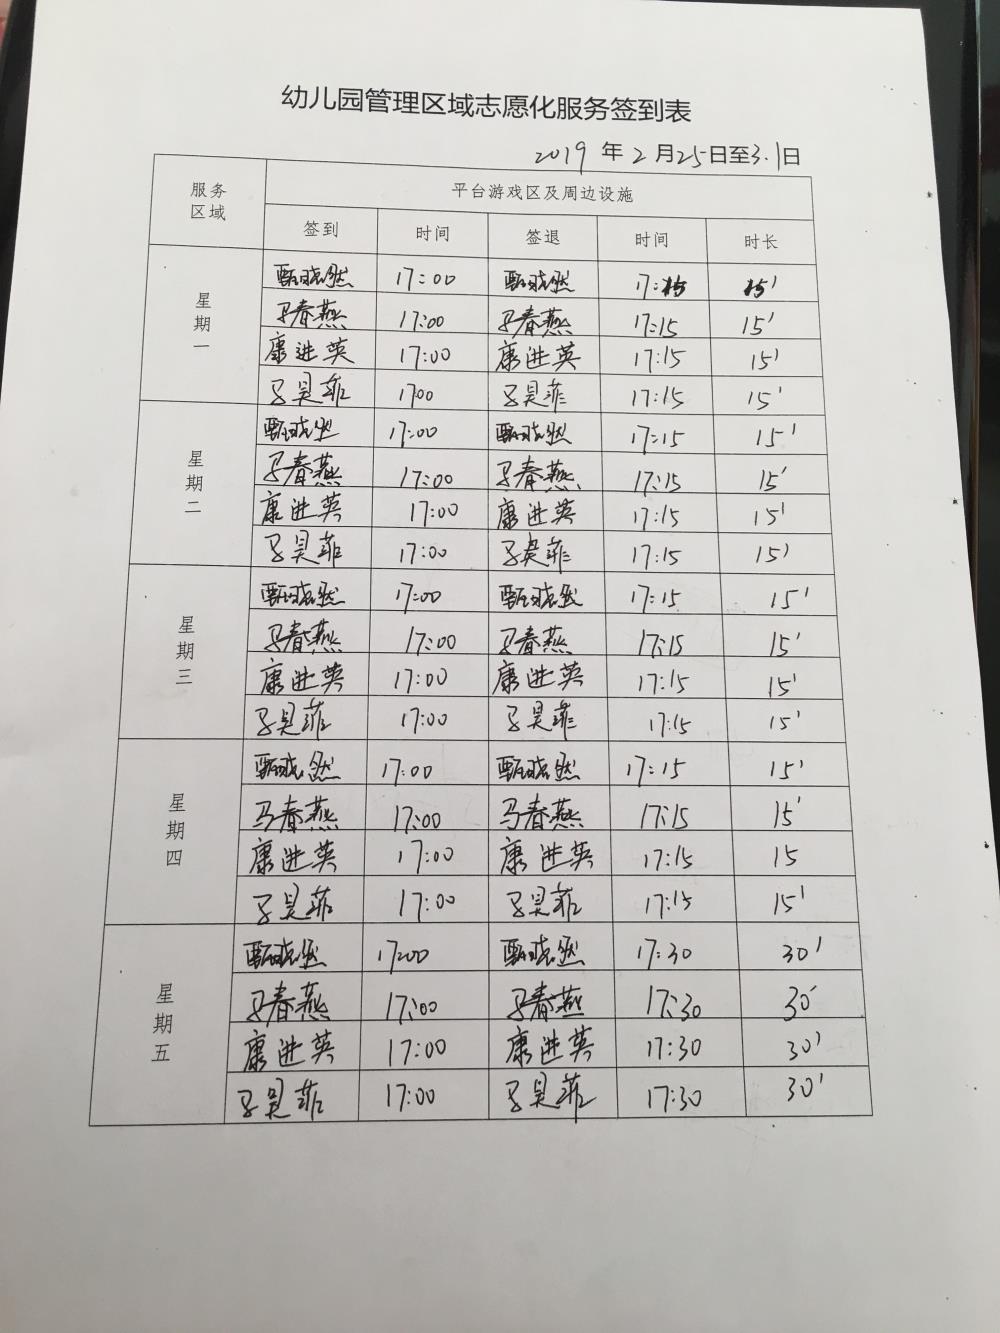 幼儿园管理区域志愿化服务签到表
2019 年 2 月 25日至3.1日
服务区域 平台游戏区及周边设施
签到 时间 签退 时间 时长
星期一
甄晓然 17:00 甄晓然 17:15 15'
马春燕 17:00 马春燕 17:15 15'
康进英 17:00 康进英 17:15 15'
马昊菲 1700 马昊菲 17:15 15'
星期二
甄晓然 17:00 甄晓然 17:15 15'
马春燕 17:00 马春燕 17:15 15'
康进英 17:00 康进英 17:15 15'
马昊菲 17:00 马昊菲 17:15 15'
星期三
甄晓然 17:00 甄晓然 17:15 15'
马春燕 17:00 马春燕 17:15 15'
康进英 17:00 康进英 17:15 15'
马昊菲 17:00 马昊菲 17:15 15'
星期四
甄晓然 17:00 甄晓然 17:15 15'
马春燕 17:00 马春燕 17:15 15'
康进英 17:00 康进英 17:15 15
马昊菲 17:00 马昊菲 17:15 15'
星期五
甄晓然 17:00 甄晓然 17:30 30'
马春燕 17:00 马春燕 17:30 30'
康进英 17:00 康进英 17:30 30'
马昊菲 17:00 马昊菲 17:30 30'